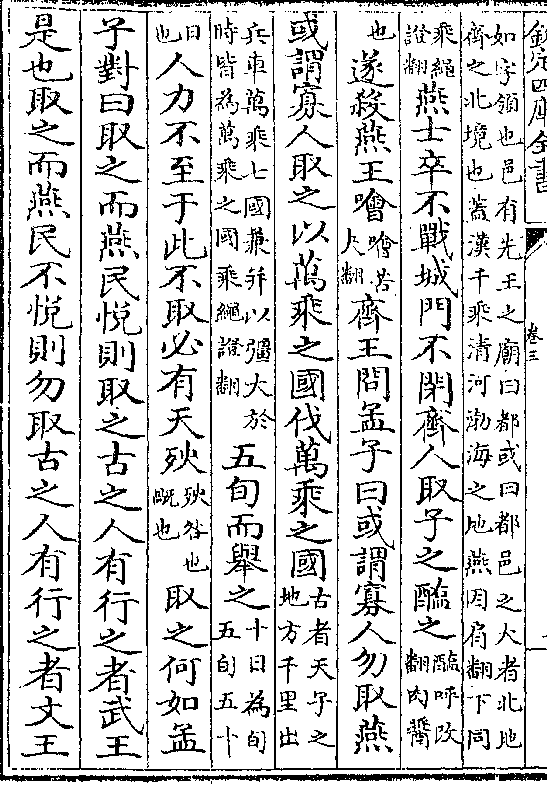 欽定四庫全書 卷三
如字領也邑有先王之廟曰都或曰都邑之大者北地
齊之北境也蓋漢千乘清河渤海之地燕因肩翻下同
乘繩證翻燕士卒不戰城門不閉齊人取子之醢之醢呼改翻肉醬
也遂殺燕王噲噲苦夬翻齊王問孟子曰或謂寡人勿取燕
或謂寡人取之以萬乘之國伐萬乘之國古者天子之地方千里出
兵車萬乘七國兼并以彊大於時皆為萬乘之國乘繩證翻五旬而舉之十日為旬五旬五十
日也人力不至于此不取必有天殃殃咎也旤也取之何如孟
子對曰取之而燕民悅則取之古之人有行之者武王
是也取之而燕民不悅則勿取古之人有行之者文王